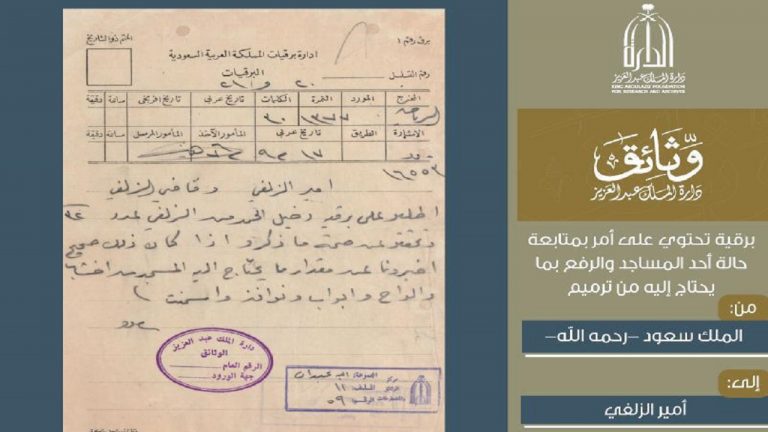 برق رقم ١
الختم ذو التاريخ
ادارة برقيات المملكة العربية السعودية
رقم التسلسل
البرقيات
٢٠ و ٢١
المخرج المورد النمرة الكلمات تاريخ عربي تاريخ افرنجي ساعة دقيقة
الرياض ١٣٧٧ ٣٠
الاشارة الطريق تاريخ عربي المأمور الآخذ المأمور المرسل ساعة دقيقة
١٧ ٩
١٦٥٥٣
امير الزلفي وقاضي الزلفي
اطلعوا على برقية دخيل الحمد من الزلفي بعدد ٣٤
وتحققوا عن صحة ما ذكر و اذا كان ذلك صحيح
اخبرونا عن مقدار ما يحتاج اليه المسجد من اخشاب
والواح وابواب ونوافذ واسمنت
سعود
دارة الملك عبد العزيز
الوثائق
الرقم العام
جهة الورود
الملف ١١
٥٩
الدارة
دارة الملك عبد العزيز
KING ABDULAZIZ FOUNDATION
FOR RESEARCH AND ARCHIVES
وثائق
دارة الملك عبد العزيز
برقية تحتوي على أمر بمتابعة
حالة أحد المساجد والرفع بما
يحتاج إليه من ترميم
من:
الملك سعود –رحمه الله–
إلى:
أمير الزلفي